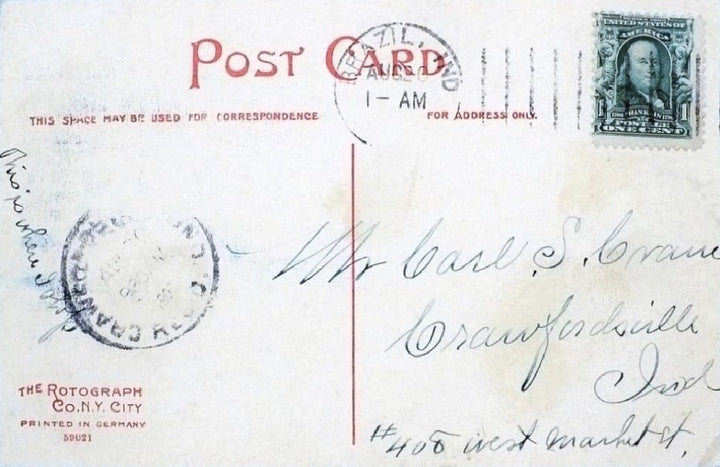 POST CARD
BRAZIL, IND
AUG 20
1 - AM
UNITED STATES OF
AMERICA
FRANKLIN
1 1
ONE CENT
THIS SPACE MAY BE USED FOR CORRESPONDENCE
FOR ADDRESS ONLY.
This is where I
CRAWFORDSVILLE IND
Mr Carl S. Crane
Crawfordsville
Ind
#408 west market st.
THE ROTOGRAPH
CO. N.Y. CITY
PRINTED IN GERMANY
59021